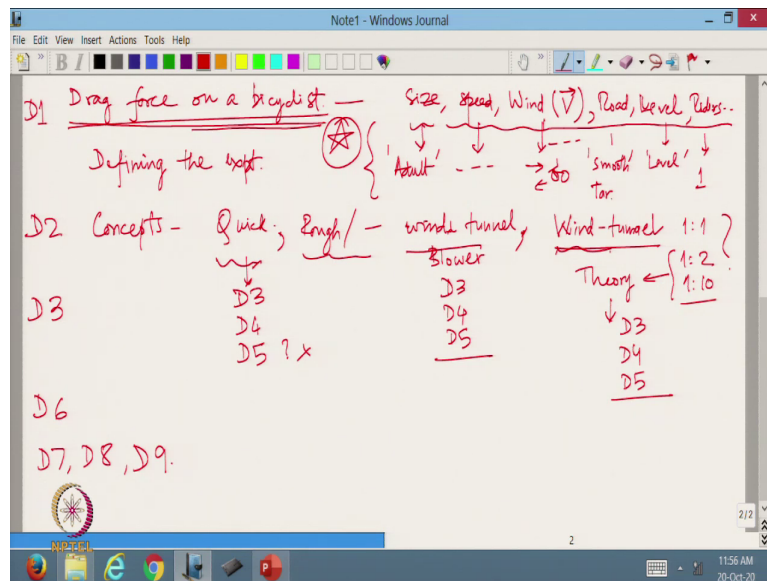 Note1 - Windows Journal
File Edit View Insert Actions Tools Help
B I
D1 Drag force on a bicyclist. — Size, speed, Wind (V), Road, Level, Riders..
Defining the expt. 'Adult' - - - 'Smooth' 'Level' 1
Tar.
D2 Concepts - Quick, Rough/ - wind tunnel, Wind-tunnel 1:1 ?
Blower 1:2
Theory 1:10
D3 D3 D3 D3
D4 D4 D4
D5 ? x D5 D5
D6
D7, D8, D9.
NPTEL
2/2
2
11:56 AM
20-Oct-20